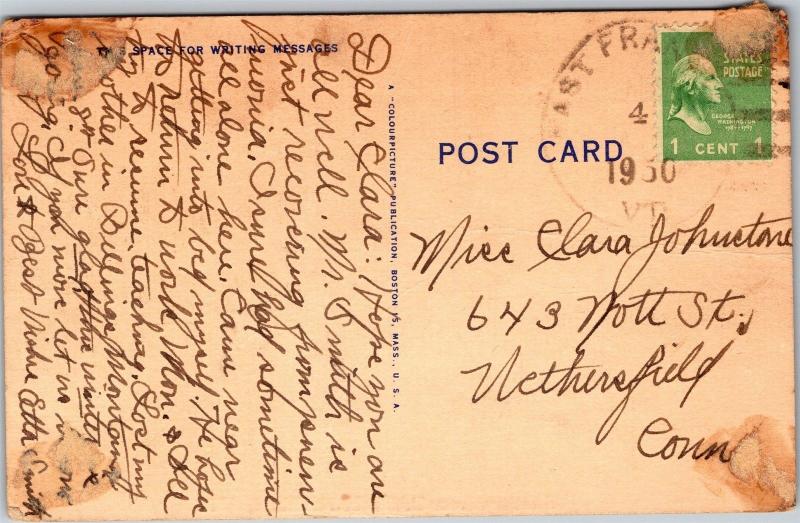 THIS SPACE FOR WRITING MESSAGES
Dear Clara: Hope you are
all well. Mr. Smith is
just recovering from pneu-
monia. I sure had sometime
all alone here. Came near
getting into bed myself. He hopes
to return to work Mon. & I'll
try to resume teaching. Lost my
brother in Billings Montana
Sure glad this winter is
going. If you move let us know
Love & Best Wishes Etta Smith
A "COLOURPICTURE" PUBLICATION, BOSTON 15, MASS., U. S. A.
POST CARD
EAST FRA
4
1950
VT
STATES
POSTAGE
GEORGE
WASHINGTON
1789-1797
1 CENT 1
Miss Clara Johnstone
643 Nott St.,
Wethersfield
Conn